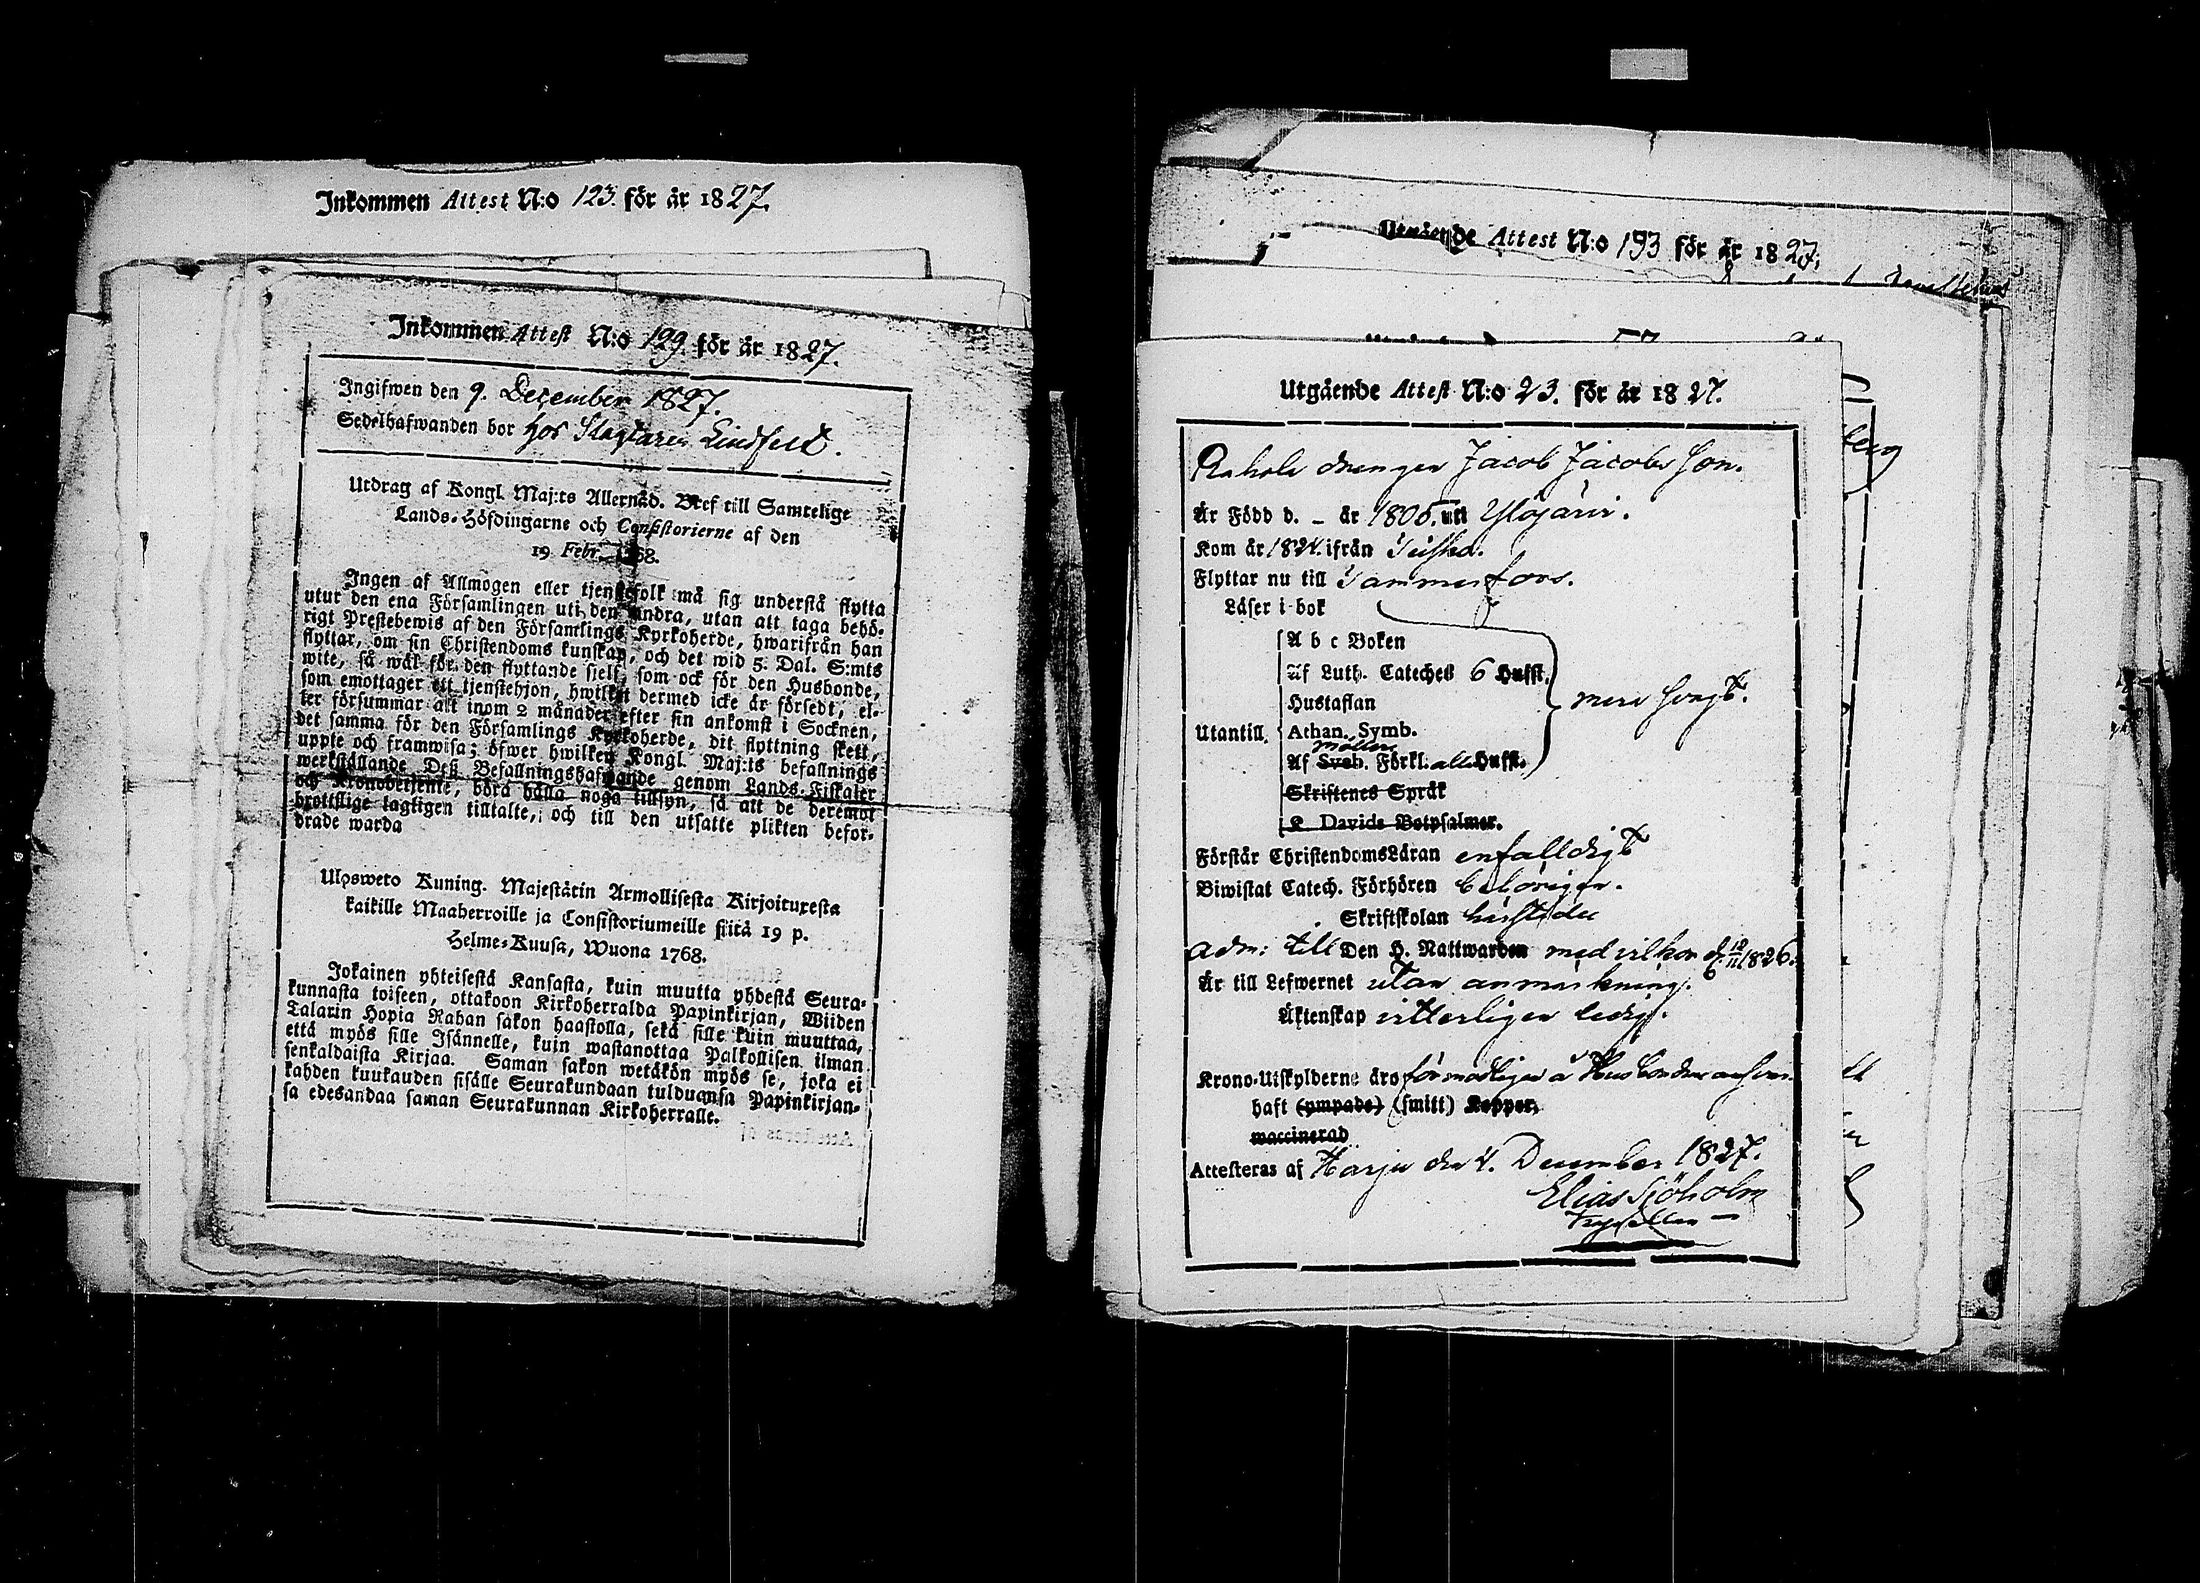 Inkommen Attest N:o 123. för år 1827.
Inkommen Attest N:o 129. för år 1827.
Ingifwen den 9. December 1827.
Sedelhafwanden bor hos Slagtaren Lindfelt.
Utdrag af Kongl. Maj:ts Allernåd. Bref till Samtelige
Lands-Höfdingarne och Consistorierne af den
19 Febr. 1768.
Ingen af Allmogen eller tjenstefolk må sig understå flytta
utur den ena Församlingen uti den andra, utan att taga behö-
rigt Prestebewis af den Församlings Kyrkoherde, hwarifrån han
flyttar, om sin Christendoms kunskap, och det wid 5. Dal. S:mts
wite, så wäl för den flyttande sjelf, som ock för den Husbonde,
som emottager ett tjenstehjon, hwilket dermed icke är försedt, el-
ler försummar att inom 2 månader efter sin ankomst i Socknen,
det samma för den Församlings Kyrkoherde, dit flyttning skett,
uppte och framwisa; öfwer hwilken Kongl. Maj:ts befallnings
werkställande Deß Befallningshafwande genom Lands-Fiskaler
och Kronobetjente, böra hålla noga tillsyn, så att de deremot
brottslige lagligen tilltalte, och till den utsatte plikten befor-
drade warda
Ulosweto Kuning. Majestätin Armollisesta Kirjoituxesta
kaikille Maaherroille ja Consistoriumeille siitä 19 p.
Helme-Kuusa, Wuona 1768.
Jokainen yhteisestä Kansasta, kuin muutta yhdestä Seura-
kunnasta toiseen, ottakoon Kirkoherralda Papinkirjan, Wiiden
Talarin Hopia Rahan sakon haastolla, sekä sille kuin muuttaa,
että myös sille Isännelle, kuin wastanottaa Palkollisen ilman
senkaldaista Kirjaa. Saman sakon wetäkön myös se, joka ei
kahden kuukauden sisälle Seurakundaan tulduansa Papinkirjan-
sa edesandaa saman Seurakunnan Kirkoherralle.
Utgående Attest N:o 193 för år 1827.
Utgående Attest N:o 23. för år 1827.
Rahola drängen Jacob Jacobs Son.
Är Född d. – år 1806. uti Ylöjärvi.
Kom år 1824. ifrån Teisko.
Flyttar nu till Tammerfors.
Läser i bok
A b c Boken
Af Luth. Cateches 6 Hufst.
Hustaflan
Utantill. Athan. Symb.
Af Sveb. Förkl. alla Hufst.
Skriftenes Språk
Davids Botpsalmer.
Förstår ChristendomsLäran enfalldigt
Biwistat Catech. Förhören behörigen.
Skriftskolan härstädes
adm: till Den H. Nattwarden med vilkor d. 12/11 1826.
Är till Lefwernet utan anmärkning.
Äktenskap vitterligen ledig.
Krono-Utskylderne äro förmodligen å Husbondens answar.
haft (ympade) (smitt) Kopper,
waccinerad
Attesteras af Harju den 4. December 1827.
Elias Sjöholm